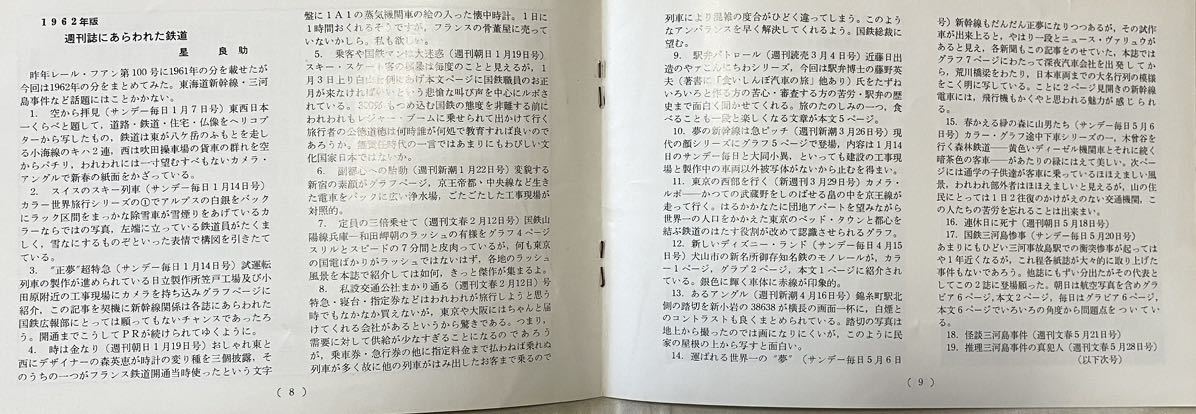 1962年版
週刊誌にあらわれた鉄道
星 良助
昨年レール・フアン第100号に1961年の分を載せたが
今回は1962年の分をまとめてみた。東海道新幹線・三河
島事件など話題にはことかかない。
1. 空から拝見(サンデー毎日1月7日号)東西日本
一くらべと題して、道路・鉄道・住宅・仏像をヘリコプ
ターから写したもの、鉄道は東が八ケ岳のふもとを走し
る小海線のキハ2連、西は吹田操車場の貨車の群れを空
からパチリ、われわれには一寸望むすべもないカメラ・
アングルで新春の紙面をかざっている。
2. スイスのスキー列車(サンデー毎日1月14日号)
カラー世界旅行シリーズの①でアルプスの白銀をバック
にラック区間をまっかな除雪車が雪煙りをあげているカ
ラーならではの写真、左端に立っている鉄道員がたくま
しく、雪なにするものぞといった表情で構図を引きたて
ている。
3. "正夢"超特急(サンデー毎日1月14日号)試運転
列車の製作が進められている日立製作所笠戸工場及び小
田原附近の工事現場にカメラを持ち込みグラフページに
紹介、この記事を契機に新幹線関係は各誌にあらわれた
国鉄広報部にとっては願ってもないチャンスであったろ
う。開通までこうしてPRが続けられてゆくように。
4. 時は金なり(週刊朝日1月19日号)おしゃれ東と
西にデザイナーの森英恵が時計の変り種を三個披露、そ
のうちの一つがフランス鉄道開通当時使ったという文字
(8)
盤に1A1の蒸気機関車の絵の入った懐中時計。1日に
1時間おくれるそうですが、フランスの骨董屋に売って
いないかしら。私も欲しい。
5. 乗客や国鉄マンは大迷惑(週刊朝日1月19日号)
スキー・スケート客の横暴は毎度のことと見えるが、1
月3日上り白山と例にあげ本文ページに国鉄職員のお正
月が来なければいいという悲愴な叫び声を中心にルポさ
れている。300%もつめ込む国鉄の態度を非難する前に
われわれもレジャー・ブームに乗せられて出かけて行く
旅行者の公徳道徳は何時誰が何処で教育すれば良いので
あろうか。無責任時代の一言ではあまりにもわびしい文
化国家日本ではないか。
6. 副都心への胎動(週刊新潮1月22日号)変貌する
新宿の素顔がグラフページ、京王帝都・中央線など生き
た電車をバックに広い浄水場、ごたごたした工事現場が
対照的。
7. 定員の三倍乗せて(週刊文春2月12日号)国鉄山
陽線兵庫―和田岬朝のラッシュの有様をグラフ4ページ
スリルとスピードの7分間と皮肉っているが、何も東京
の国電ばかりがラッシュではないはず、各地のラッシュ
風景を本誌で紹介しては如何、きっと傑作が集まるよ。
8. 私設交通公社まかり通る(週刊文春2月12日)号
特急・寝台・指定券などはわれわれが旅行しようと思う
時でもなかなか買えないが、東京や大阪にはちゃんと届
けてくれる会社があるというから驚きである。つまり、
需要に対して供給が少なすぎることになるのであろう
が、乗車券・急行券の他に指定料金まで払わねば乗れぬ
列車が多く故に他の列車がはみ出したお客まで乗るので
列車により混雑の度合がひどく違ってしまう。このよう
なアンバランスを早く解決してくれるよう。国鉄総裁に
望む。
9. 駅弁パトロール(週刊読売3月4日号)近藤日出
造のやァこんにちわシリーズ。今回は駅弁博士の藤野英
夫(著書に「食いしんぼ汽車の旅」他あり)氏をたずね
いろいろと作る方の苦心・審査する方の苦労・駅弁の歴
史まで面白く聞かせてくれる。旅のたのしみの一つ、食
べることも一段と楽しくなる文章が本文5ページ。
10. 夢の新幹線は急ピッチ(週刊新潮3月26日号)現
代の顔シリーズにグラフ5ページで登場、内容は1月14
日のサンデー毎日と大同小異、といっても建設の工事現
場と製作中の車両以外被写体がないから止むを得まい。
11. 東京の西部を行く(新週刊3月29日号)カメラ・
ルポ―かつての武蔵野をしのばせる畠の中を京王線が
走って行く。はるかかなたに団地アパートを望みながら
世界一の人口をかかえた東京のベッド・タウンと都心を
結ぶ鉄道のはたす役割が改めて認識させられるグラフ。
12. 新しいディズニー・ランド(サンデー毎日4月15
日号)犬山市の新名所御存知名鉄のモノレールが、カラ
ー1ページ、グラフ2ページ、本文1ページに紹介され
ている。銀色に輝く車体に赤線が印象的。
13. あるアングル(週刊新潮4月16日号)錦糸町駅北
側の踏切を新小岩の38638が横長の画面一杯に、白煙と
のコントラストも良くまとめられている。踏切の写真は
地上から撮ったのでは画になりにくいが、このように民
家の屋根の上から写すと面白い。
14. 運ばれる世界一の"夢"(サンデー毎日5月6日
(9)
号)新幹線もだんだん正夢になりつつあるが、その試作
車が出来上ると、やはり一段とニュース・ヴァリュウが
あると見え、各新聞もこの記事をのせていた、本誌では
グラフ7ページにわたって深夜汽車会社を出発してか
ら、荒川橋梁をわたり、日本車両までの大名行列の模様
をこく明に写している。ことに2ページ見開きの新幹線
電車には、飛行機もかくやと思われる魅力が感じられ
る。
15. 春かえる緑の森に山男たち(サンデー毎日5月6
日号)カラー・グラフ途中下車シリーズの一、木曽谷を
行く森林鉄道―黄色いディーゼル機関車とそれに続く
暗茶色の客車―があたりの緑にはえて美しい。次ペー
ジには通学の子供達が客車に乗っているほほえましい風
景、われわれ部外者はほほえましいと見えるが、山の住
民にとっては1日2往復のかけがえのない交通機関、こ
の人たちの苦労を忘れることは出来まい。
16. 連休日に死す(週刊朝日5月18日号)
17. 国鉄三河島惨事(サンデー毎日5月20日号)
あまりにもひどい三河事故島駅での衝突惨事が起っては
や1年近くなるが、これ程各紙が大々的に取り上げた
事件もないであろう。他誌にもずい分出たがその代表と
してこの2誌に登願った。朝日は航空写真を含めグラ
ビア6ページ、本文2ページ、毎日はグラビア6ページ
本文6ページでいろいろの角度から問題点をついてい
る。
18. 怪談三河島事件(週刊文春5月21日号)
19. 推理三河島事件の真犯人(週刊文春5月28日号)
(以下次号)